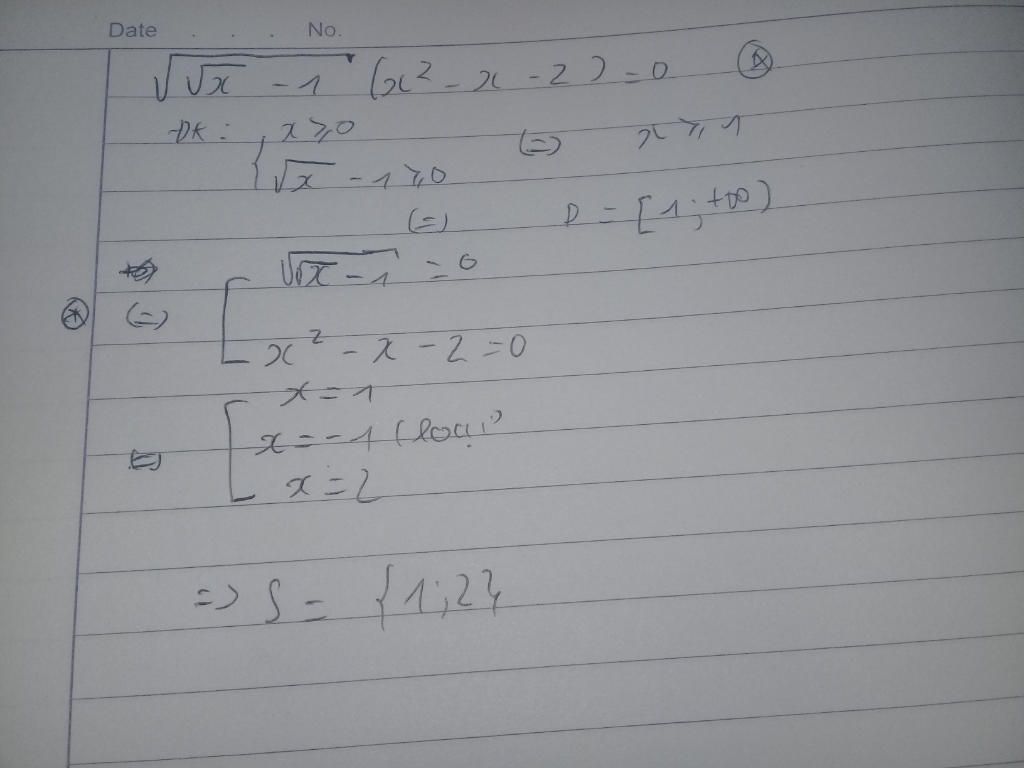 Date . . . . No.
√(√x - 1) (x² - x - 2) = 0 ⊛
ĐK: { x ≥ 0 (=) x ≥ 1
√x - 1 ≥ 0
(=) D = [1; +∞)
[ √(√x - 1) = 0
⊛ (=)
x² - x - 2 = 0
[ x = 1
x = -1 (loại)
(=) x = 2
=> S = {1; 2}